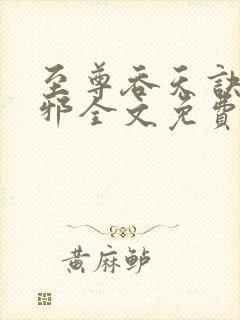 至尊吞天诀
邪全文免费
黄麻鲈